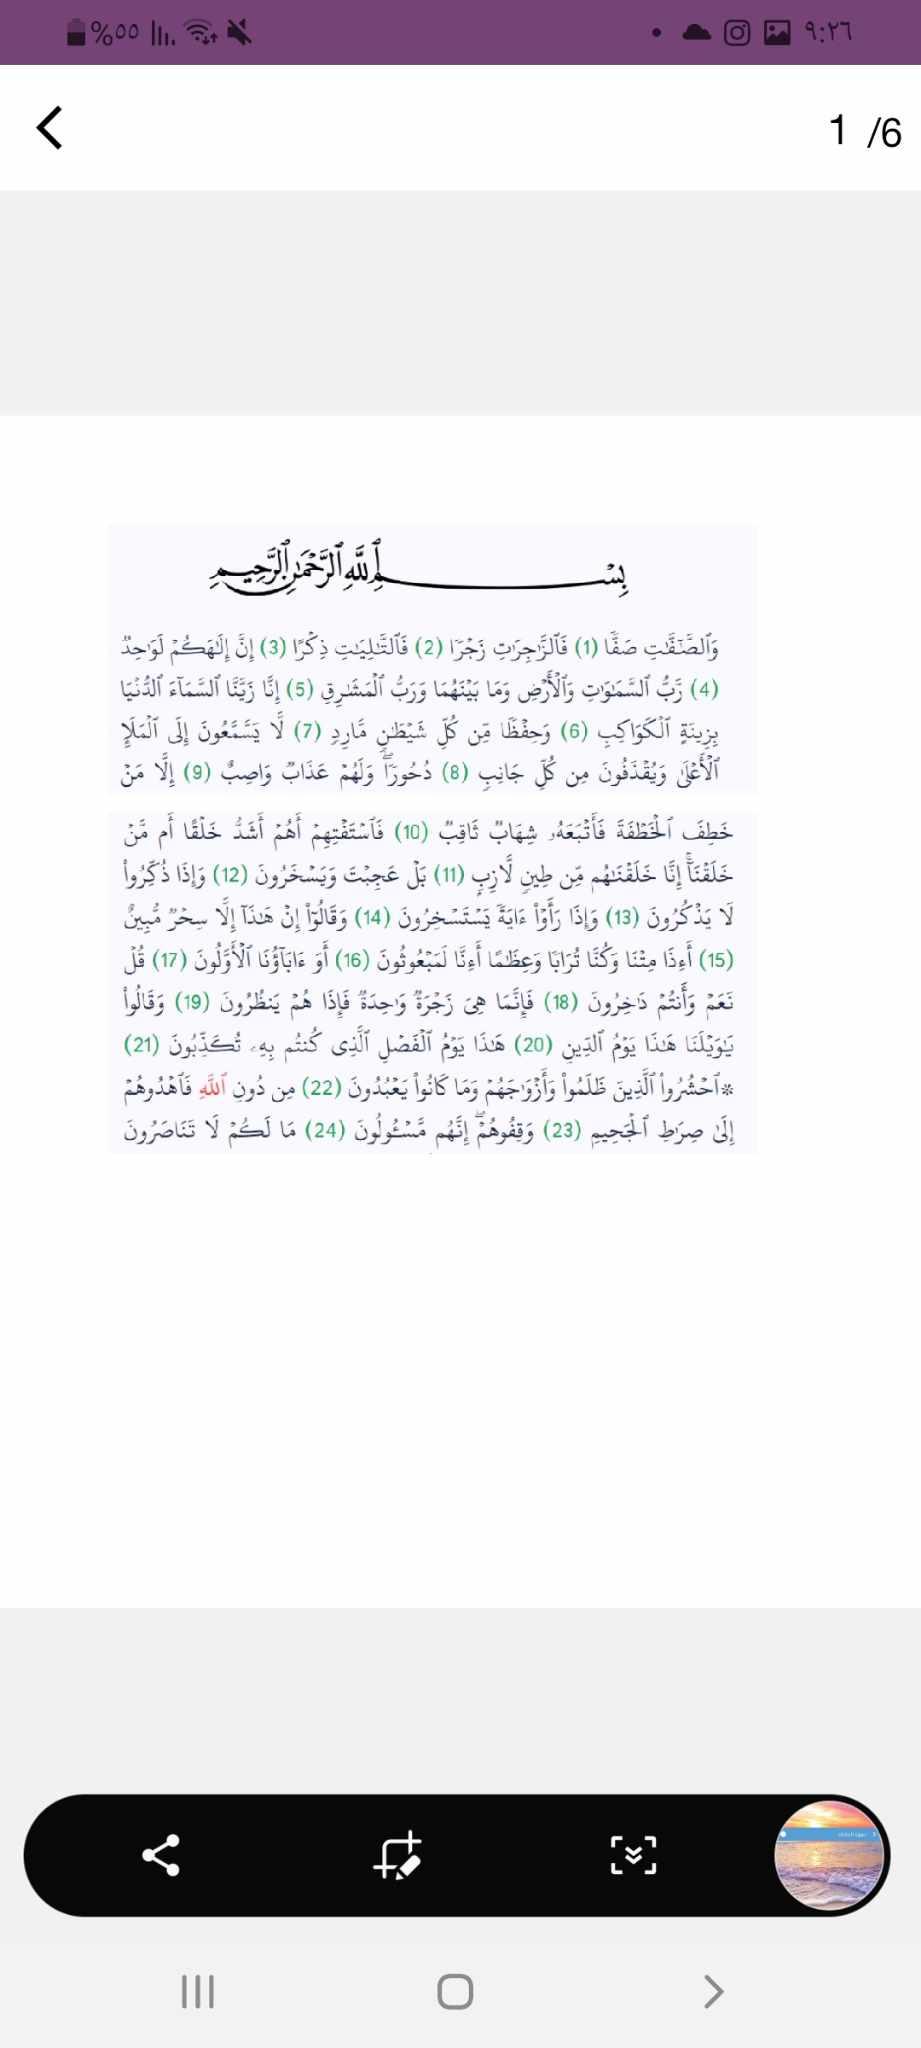 ٩:٢٦
%٥٥
1 /6
بِسْمِ ٱللَّهِ ٱلرَّحْمَٰنِ ٱلرَّحِيمِ
وَٱلصَّٰٓفَّٰتِ صَفّٗا (1) فَٱلزَّٰجِرَٰتِ زَجۡرٗا (2) فَٱلتَّٰلِيَٰتِ ذِكۡرًا (3) إِنَّ إِلَٰهَكُمۡ لَوَٰحِدٞ
(4) رَّبُّ ٱلسَّمَٰوَٰتِ وَٱلۡأَرۡضِ وَمَا بَيۡنَهُمَا وَرَبُّ ٱلۡمَشَٰرِقِ (5) إِنَّا زَيَّنَّا ٱلسَّمَآءَ ٱلدُّنۡيَا
بِزِينَةٍ ٱلۡكَوَاكِبِ (6) وَحِفۡظٗا مِّن كُلِّ شَيۡطَٰنٖ مَّارِدٖ (7) لَّا يَسَّمَّعُونَ إِلَى ٱلۡمَلَإِ
ٱلۡأَعۡلَىٰ وَيُقۡذَفُونَ مِن كُلِّ جَانِبٖ (8) دُحُورٗاۖ وَلَهُمۡ عَذَابٞ وَاصِبٌ (9) إِلَّا مَنۡ
خَطِفَ ٱلۡخَطۡفَةَ فَأَتۡبَعَهُۥ شِهَابٞ ثَاقِبٞ (10) فَٱسۡتَفۡتِهِمۡ أَهُمۡ أَشَدُّ خَلۡقًا أَم مَّنۡ
خَلَقۡنَآۚ إِنَّا خَلَقۡنَٰهُم مِّن طِينٖ لَّازِبِۭ (11) بَلۡ عَجِبۡتَ وَيَسۡخَرُونَ (12) وَإِذَا ذُكِّرُواْ
لَا يَذۡكُرُونَ (13) وَإِذَا رَأَوۡاْ ءَايَةٗ يَسۡتَسۡخِرُونَ (14) وَقَالُوٓاْ إِنۡ هَٰذَآ إِلَّا سِحۡرٞ مُّبِينٌ
(15) أَءِذَا مِتۡنَا وَكُنَّا تُرَابٗا وَعِظَٰمًا أَءِنَّا لَمَبۡعُوثُونَ (16) أَوَ ءَابَآؤُنَا ٱلۡأَوَّلُونَ (17) قُلۡ
نَعَمۡ وَأَنتُمۡ دَٰخِرُونَ (18) فَإِنَّمَا هِيَ زَجۡرَةٞ وَٰحِدَةٞ فَإِذَا هُمۡ يَنظُرُونَ (19) وَقَالُواْ
يَٰوَيۡلَنَا هَٰذَا يَوۡمُ ٱلدِّينِ (20) هَٰذَا يَوۡمُ ٱلۡفَصۡلِ ٱلَّذِي كُنتُم بِهِۦ تُكَذِّبُونَ (21)
*ٱحۡشُرُواْ ٱلَّذِينَ ظَلَمُواْ وَأَزۡوَٰجَهُمۡ وَمَا كَانُواْ يَعۡبُدُونَ (22) مِن دُونِ ٱللَّهِ فَٱهۡدُوهُمۡ
إِلَىٰ صِرَٰطِ ٱلۡجَحِيمِ (23) وَقِفُوهُمۡۖ إِنَّهُم مَّسۡـُٔولُونَ (24) مَا لَكُمۡ لَا تَنَاصَرُونَ